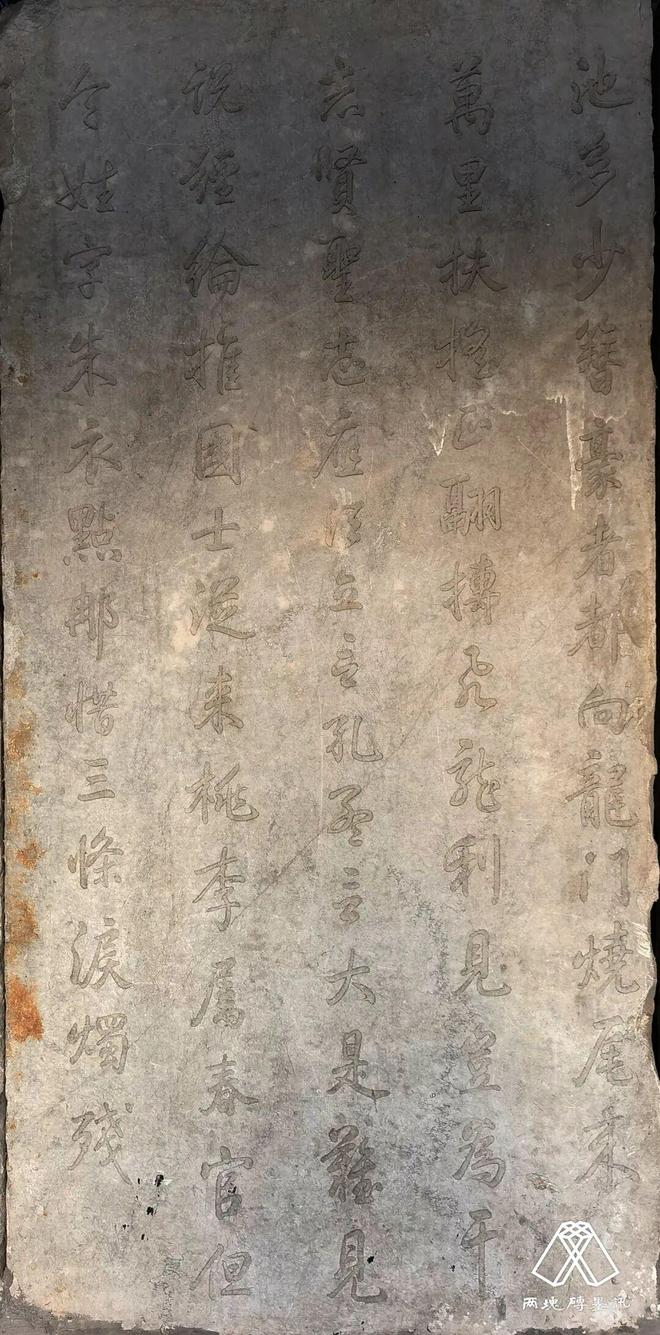 池多少簪豪者都向龍门燒尾来
萬里扶搖正翮摶飛龍利見豈為干
志賢聖志應須立言孔孟言大是難見
說經綸推國士從来桃李属春官但
令姓字朱衣點那惜三條淚燭殘
两塊磚墨訊